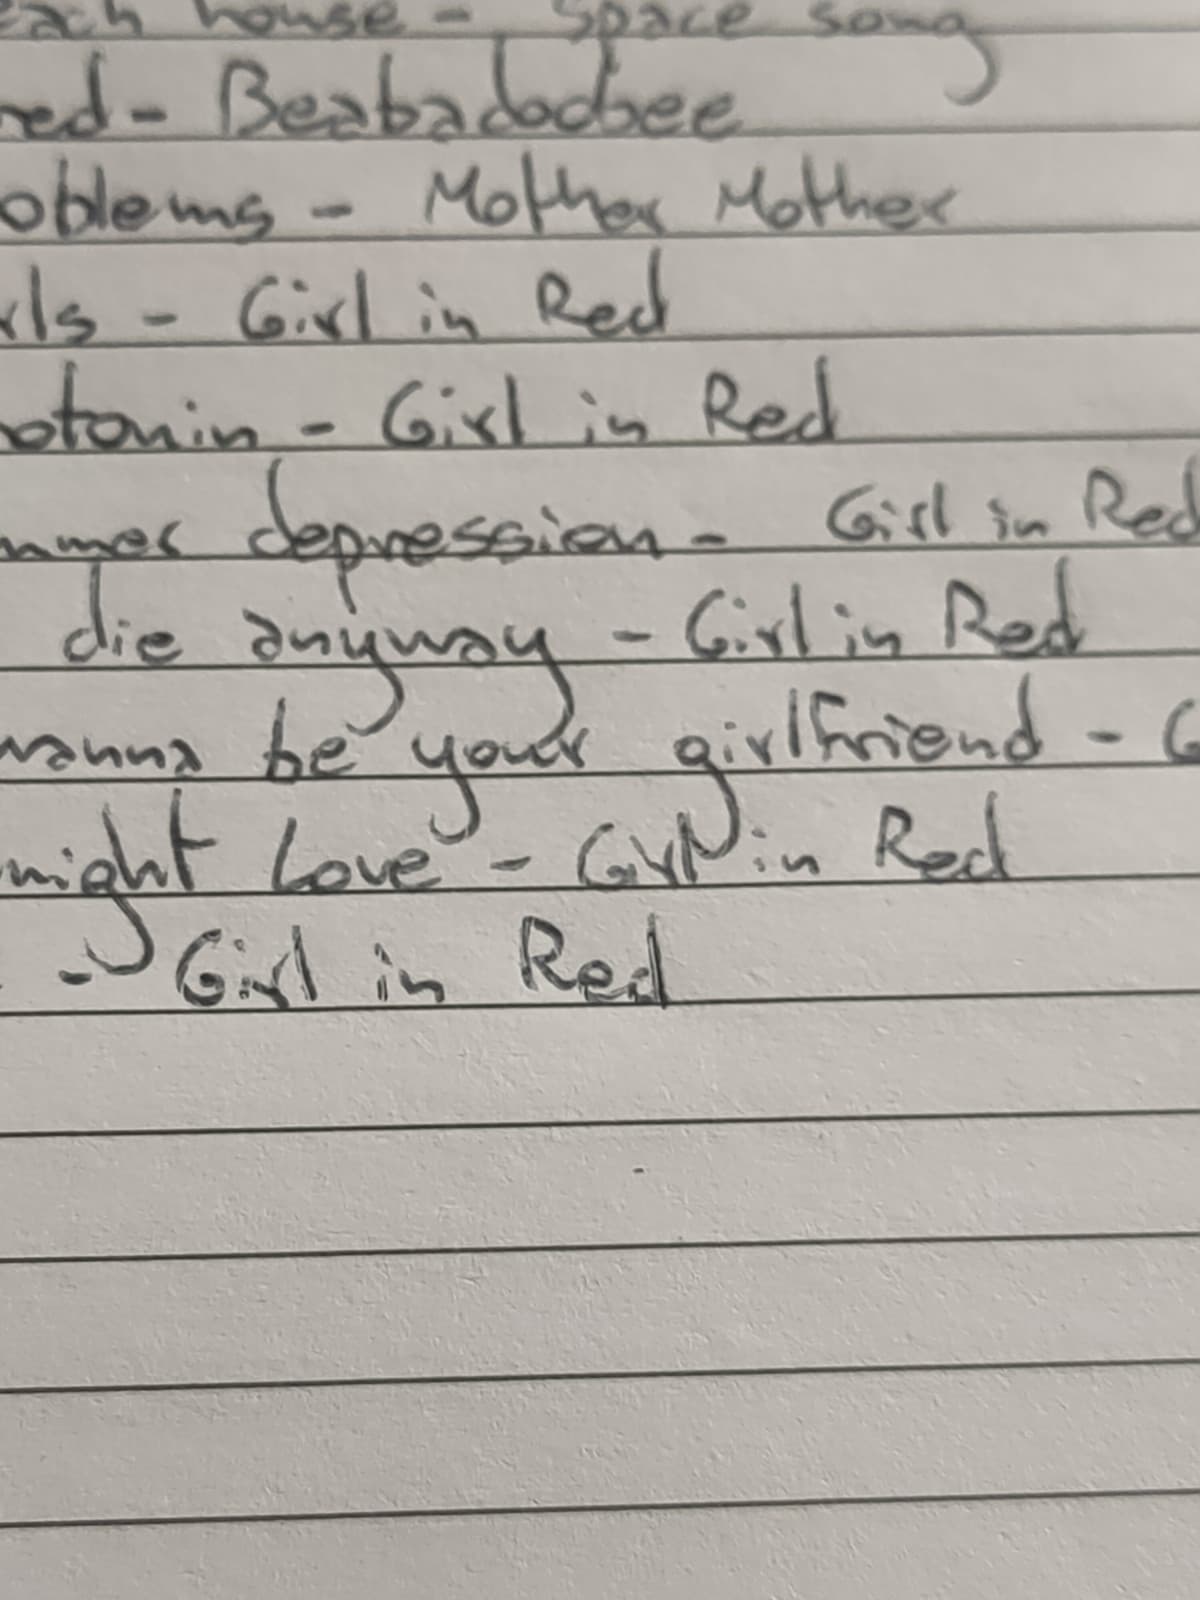 each house - Space song
red - Beabadoobee
oblems - Mother Mother
rls - Girl in Red
otonin - Girl in Red
mmer depression - Girl in Red
die anyway - Girl in Red
wanna be your girlfriend - G
night Love - Girl in Red
- Girl in Red